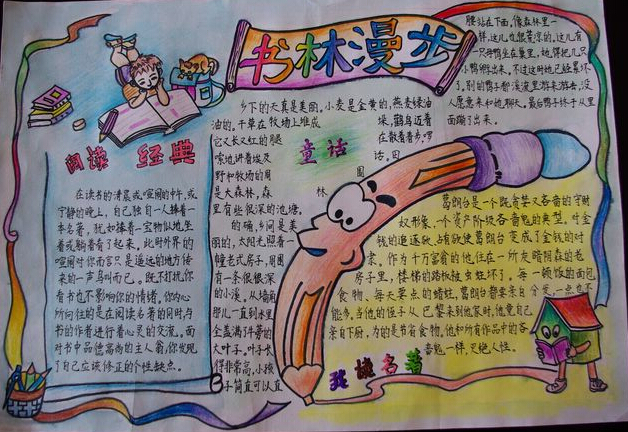 书林漫步
阅读 经典
在读书的清晨或喧闹的中午,或
宁静的晚上,自己独自一人捧着一
本名著,犹如捧着一宝物似地,坐
着或躺着看了起来,此时外界的
喧闹对你而言只是遥远的地方传
来的一声鸟叫而已。既不打扰你
看书也不影响你的情绪,你内心
所向往的是在阅读名著的同时与
书的作者进行着心灵的交流,面
对书中品德高尚的主人翁,你发现
了自己应该修正的个性缺点。
童话
乡下的天真是美丽。小麦是金黄的,燕麦绿油
油的。干草在牧场上堆成垛,鹳鸟迈着
它又长又红的腿在散着步,啰
嗦地讲着埃及话。田
野和牧场的周围
是大森林,森林
里有些很深的池塘。
的确,乡间是美
丽的,太阳光照着一
幢老式房子,周围
有一条很深
的小溪。从墙角
那儿一直到水里,
全盖满了牛蒡的
大叶子。叶子长
得非常高,小孩
子简直可以直
腰站在下面,像森林里一
样。这儿也很荒凉的。这儿有
一只母鸭坐在巢里,她得把几只
小鸭孵出来。不过这时她已经累坏
了。别的鸭子都在溪流里游来游去,没
人愿意来和她聊天。最后鸭子终于从里
面蹦了出来。
葛朗台是一个既贪婪又吝啬的守财
奴形象,一个资产阶级吝啬鬼的典型。对金
钱的追逐欲、占有欲使葛朗台变成了金钱的对
象,作为千万富翁的他,住在一所灰暗阴森的老
房子里,楼梯的踏板被虫蛀坏了。每一顿饭的面包
食物,每天要点的蜡蛀,葛朗台都要亲自分发一点也不
能多,当他的侄子从巴黎来到他家时,他竟自己
亲自下厨,为的是节省食物,他和所有作品中的吝
啬鬼一样,灭绝人性。
我读名著